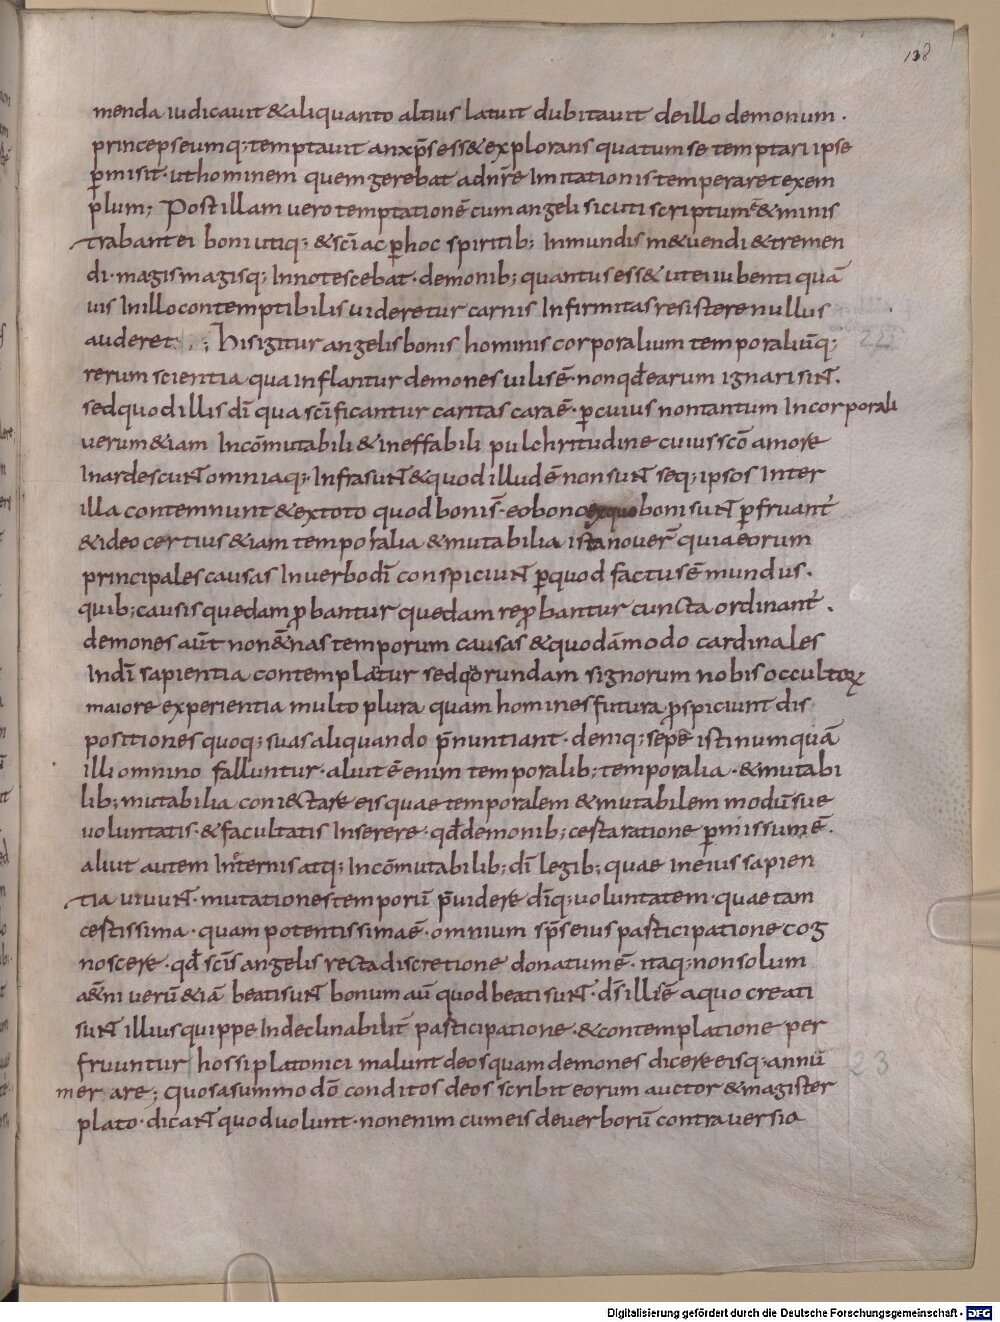 138
menda iudicauit &aliquanto altius latuit dubitauit deillo demonum·
princepseumq; temptauit anxp̄s ess& explorans quatum se temptari ipse
p̄misit· uthominem quemgerebat adnr̄e Imitationis temperaret exem
plum; Postillam uero temptationē cum angeli sicuti scriptumē &minis
trabant ei boni utiq; &sc̄i ac p̄hoc spiritib; Inmundis m&uendi &tremen
di· magis magisq; Innotescebat· demonib; quantus ess& ut ei iubenti quā
uis Inillo contemptibilis uideretur carnis Infirmitas resistere nullus
auderet; His igitur angelis bonis hominis corporalium temporaliūq;
rerum scientia qua inflantur demones uilis ē· non qđ earum ignari sint.
sed quod illis dī qua sc̄ificantur caritas cara ē· p̄cuius non tantum Incorporali
uerum &iam Incōmutabili &ineffabili pulchritudine cuius sc̄o amore
Inardescunt omniaq; Infra sunt &quod illud ē non sunt seq; ipsos Inter
illa contemnunt &extoto quod boni s̄· eo bono exquo boni sunt p̄fruant̄
&ideo certius &iam temporalia &mutabilia ista nouer̄ quia eorum
principales causas Inuerbo dī conspiciunt p̄quod factus ē mundus.
quib; causis quedam p̄bantur quedam rep̄bantur cuncta ordinant̄.
demones aūt non &̄nas temporum causas &quodāmodo cardinales
Indī sapientia contemplātur sed quorundam signorum nobis occultorꝝ
maiore experientia multo plura quam homines futura p̄spiciunt dis
positiones quoq; suas aliquando p̄nuntiant· deniq; sepe isti numquā
illi omnino falluntur· aliut ē enim temporalib; temporalia· &mutabi
lib; mutabilia coniectare eisquae temporalem &mutabilem modū sue
uoluntatis· &facultatis Inserere· qđ demonib; certa ratione p̄missum ē.
aliut autem Inęternis atq; Incōmutabilib; dī legib; quae in eius sapien
tia uiuunt· mutationes temporū p̄uidere dīq; uoluntatem· quae tam
certissima· quam potentissima ē· omnium sp̄s eius participatione cog
noscere· qđ sc̄is angelis recta discretione donatum ē· itaq; non solum
a&̄ni uerū &iā beati sunt bonum aū quod beati sunt· ds̄ illis ē a quo creati
sunt illius quippe Indeclinabilit̄ participatione· &contemplatione per
fruuntur hos si platonici malunt deos quam demones dicere eisq; annū
mer are; quos a summo dō conditos deos scribit eorum auctor &magister
plato· dicant quod uolunt· non enim cum eis de uerborū controuersia
22
23
Digitalisierung gefördert durch die Deutsche Forschungsgemeinschaft - DFG